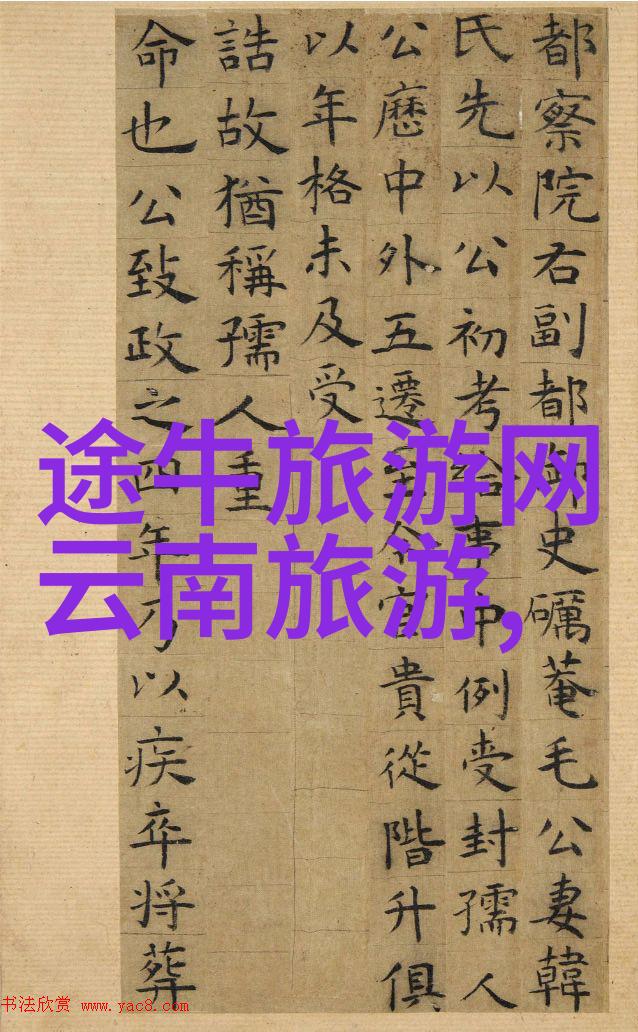 都察院右副都御史礪菴毛公妻韓
氏先以公初考給事中例受封孺人
公歷中外五遷至今官貴從階升俱
以年格未及受
誥故猶稱孺人重
命也公致政之四年乃以疾卒将葬
途牛旅游网
云南旅游,
书法欣赏 www.yac8.com